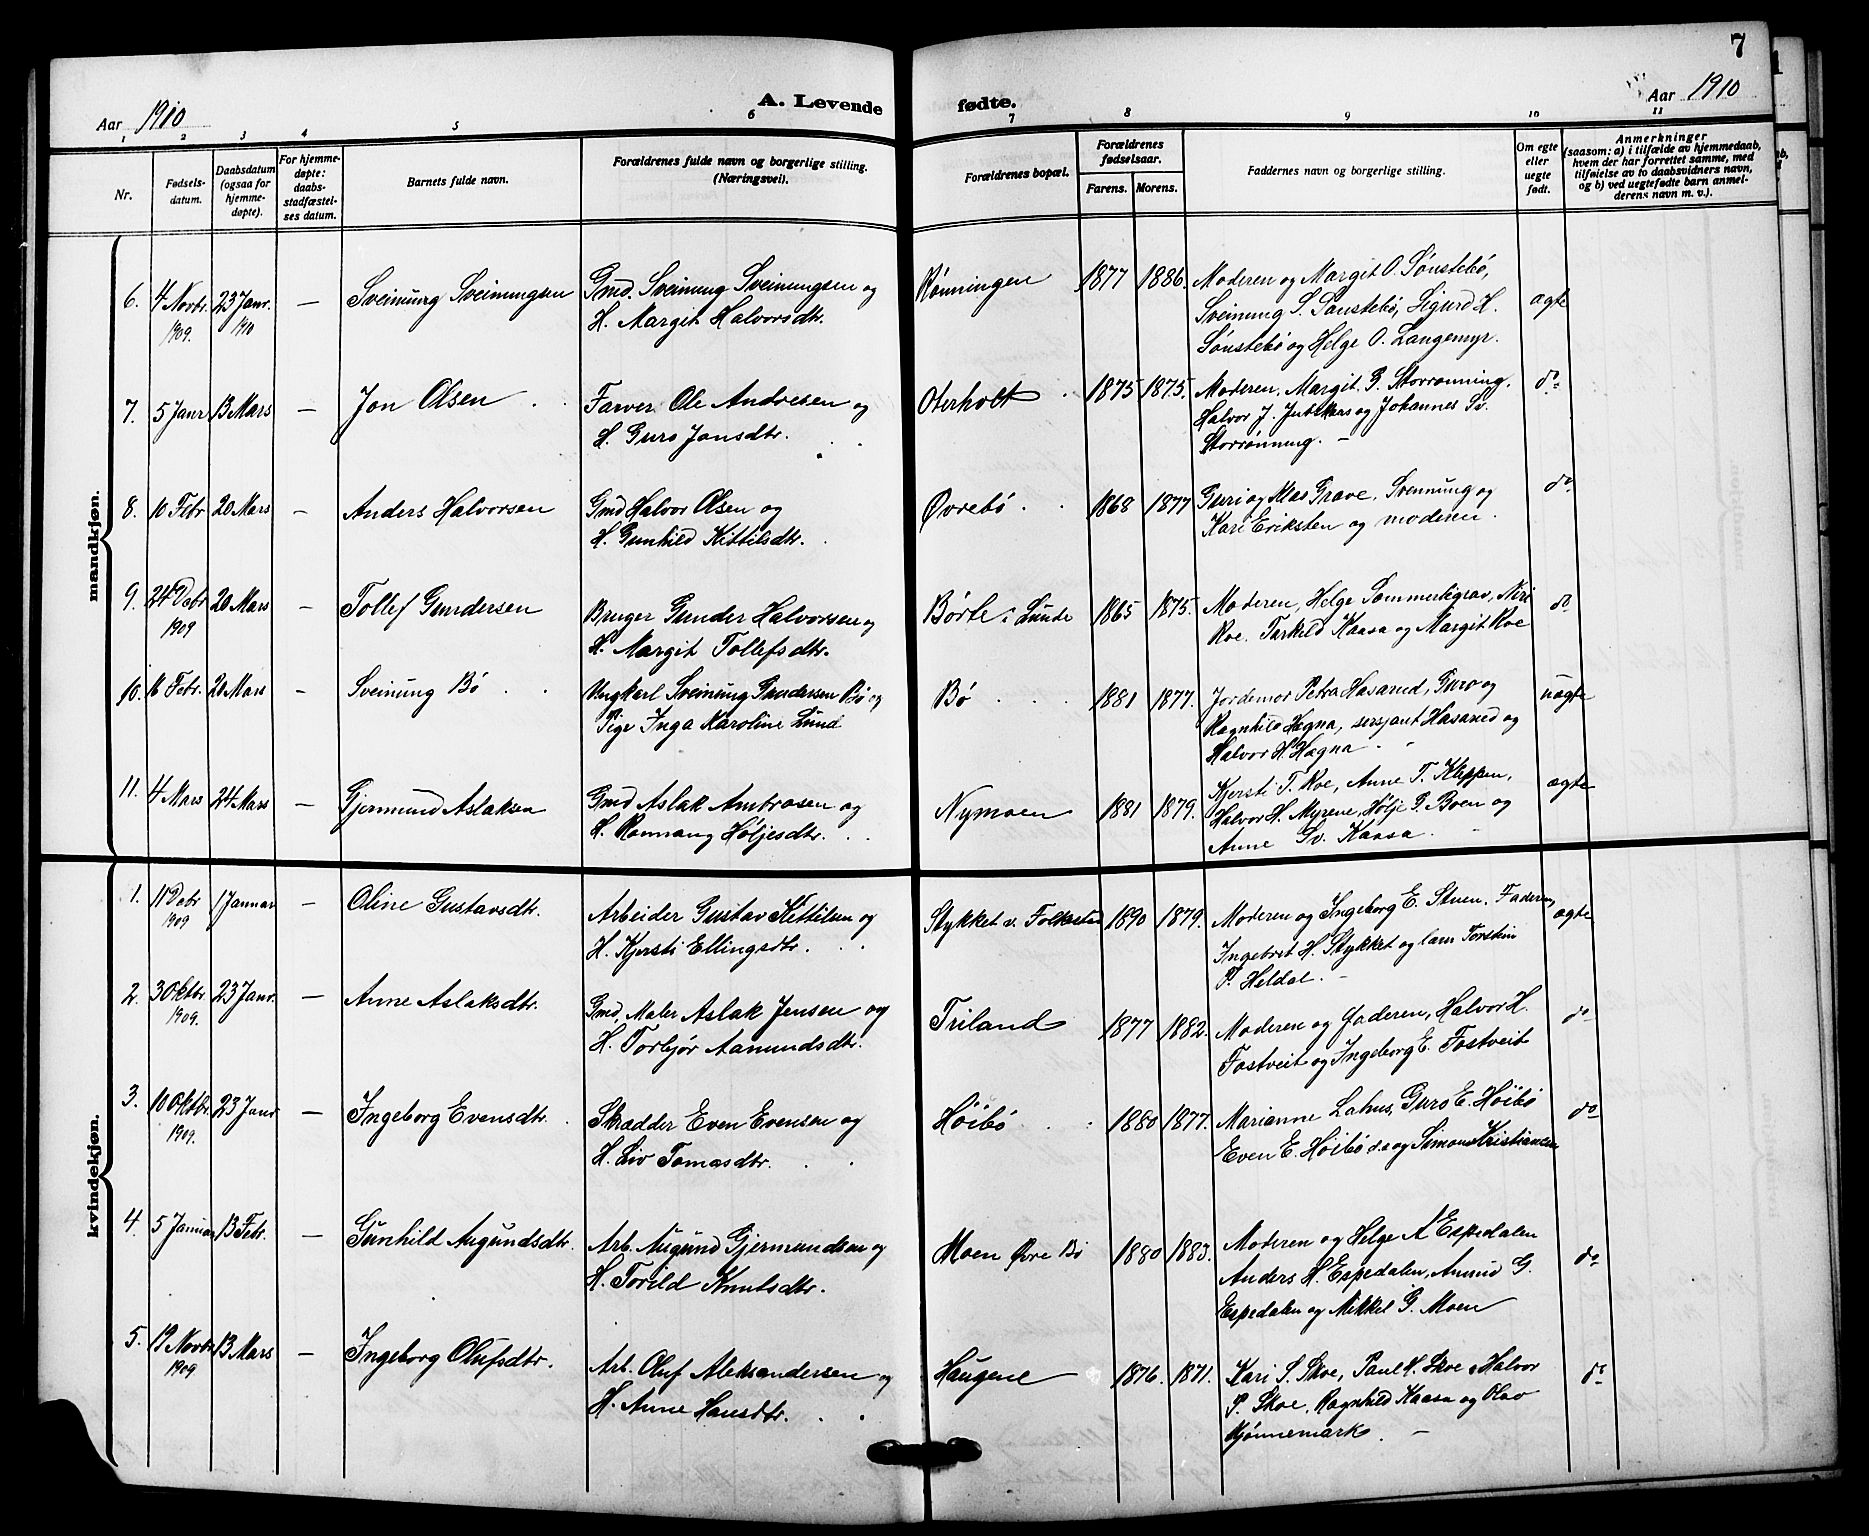 7
Aar 1910
A. Levende fødte.
Aar 1910
1 2 3 4 5 6 7 8 9 10 11
Nr.
Fødsels-
datum.
Daabsdatum
(ogsaa for
hjemme-
døpte).
For hjemme-
døpte:
daabs-
stadfæstel-
ses datum.
Barnets fulde navn.
Forældrenes fulde navn og borgerlige stilling.
(Næringsvei).
Forældrenes bopæl.
Forældrenes
fødselsaar.
Farens. Morens.
Faddernes navn og borgerlige stilling.
Om egte
eller
uegte
født.
Anmerkninger
(saasom: a) i tilfælde av hjemmedaab,
hvem der har forrettet samme, med
tilføielse av to daabsvidners navn,
og b) ved uegtefødte barn anmel-
derens navn m. v.).
mandkjøn.
6. 4 Novbr. 1909. 23 Janr. 1910 — Sveinung Sveinungsen
Gmd. Sveinung Sveinungsen og
H. Margit Halvorsdtr.
Rønningen 1877 1886.
Moderen og Margit O. Sønstebø,
Sveinung S. Sønstebø, Sigurd H.
Sønstebø og Helge O. Langemyr.
ægte
7. 5 Janr 13 Mars — Jon Olsen
Farver Ole Andresen og
H. Guro Jonsdtr.
Oterholt 1875 1875.
Moderen, Margit G. Storrønning.
Halvor J. og Johannes Sv.
Storrønning. —
do
8. 10 Febr 20 Mars — Anders Halvorsen
Gmd Halvor Olsen og
H. Gunhild Kittilsdtr.
Øvrebø 1868 1877
Guri og Klas Grave, Svennung og
Kari Eriksten og moderen.
do
9. 24 Debr 1909 20 Mars — Tollef Gundersen
Bruger Gunder Halvorsen og
H. Margit Tollefsdtr.
Børte i Lunde 1865 1875.
Moderen, Helge Sommerligrav,
Roe. Tarkeld Kaasa og Margit Roe
do
10. 16 Febr. 20 Mars — Sveinung Bø
Ungkarl Sveinung Gundersen Bø og
Pige Inga Karoline Lund
Bø 1881 1877.
Jordemor Petra Hasarud, Guro og
Ragnhild Hægna, sersjant Hasarud og
Halvor H. Hægna.
uægte
11. 4 Mars 24 Mars — Gjermund Aslaksen
Gmd Aslak Ambrosen og
H. Rønnaug Høljesdtr.
Nymoen 1881 1879.
Kjersti T. Roe, Anne T. Kleppen,
Halvor H. Myrene, Hølje G. Boen og
Anne Sv. Kaasa.
ægte
kvindekjøn.
1. 11 Debr 1909 1 Januar — Oline Gustavsdtr.
Arbeider Gustav Kittilsen og
H. Kjersti Ellingsdtr.
Stykket v. Folkestad 1890 1879.
Moderen og Ingeborg E. Stuen. Faderen,
Ingebret H. Stykket og Torstein
P. Heldal. —
ægte
2. 3 Oktbr. 1909. 23 Janr. — Anne Aslaksdtr.
Gmd, Maler Aslak Jensen og
H. Torbjør Aamundsdtr.
Triland 1877 1882.
Moderen og faderen, Halvor H.
Fostveit og Ingeborg E. Fostveit
do
3. 10 Oktbr. 1909. 23 Janr — Ingeborg Evensdtr.
Skrædder Even Evensen og
H. Liv Tomasdtr.
Høibø 1880 1877.
Marianne Lahus, Guro E. Høibø
Even E. Høibø d.e og Simon Kristiansen
do
4. 5 Januar 13 Febr. — Gunhild Augundsdtr.
Arb. Augund Gjermundsen og
H. Torild Knutsdtr.
Moen Øvre Bø 1880 1883.
Moderen og Helge A Espedalen
Anders H. Espedalen, Amund G.
Espedalen og Mikkel G. Moen
do
5. 19 Novbr 1909 13 Mars — Ingeborg Olufsdtr.
Arb. Oluf Aleksandersen og
H. Anne Hansdtr.
Haugene 1876. 1871.
Kari S. Skoe, Paul H. Skoe, Halvor
P. Skoe, Ragnhild Kaasa og Olav
Kjønnemark. —
do